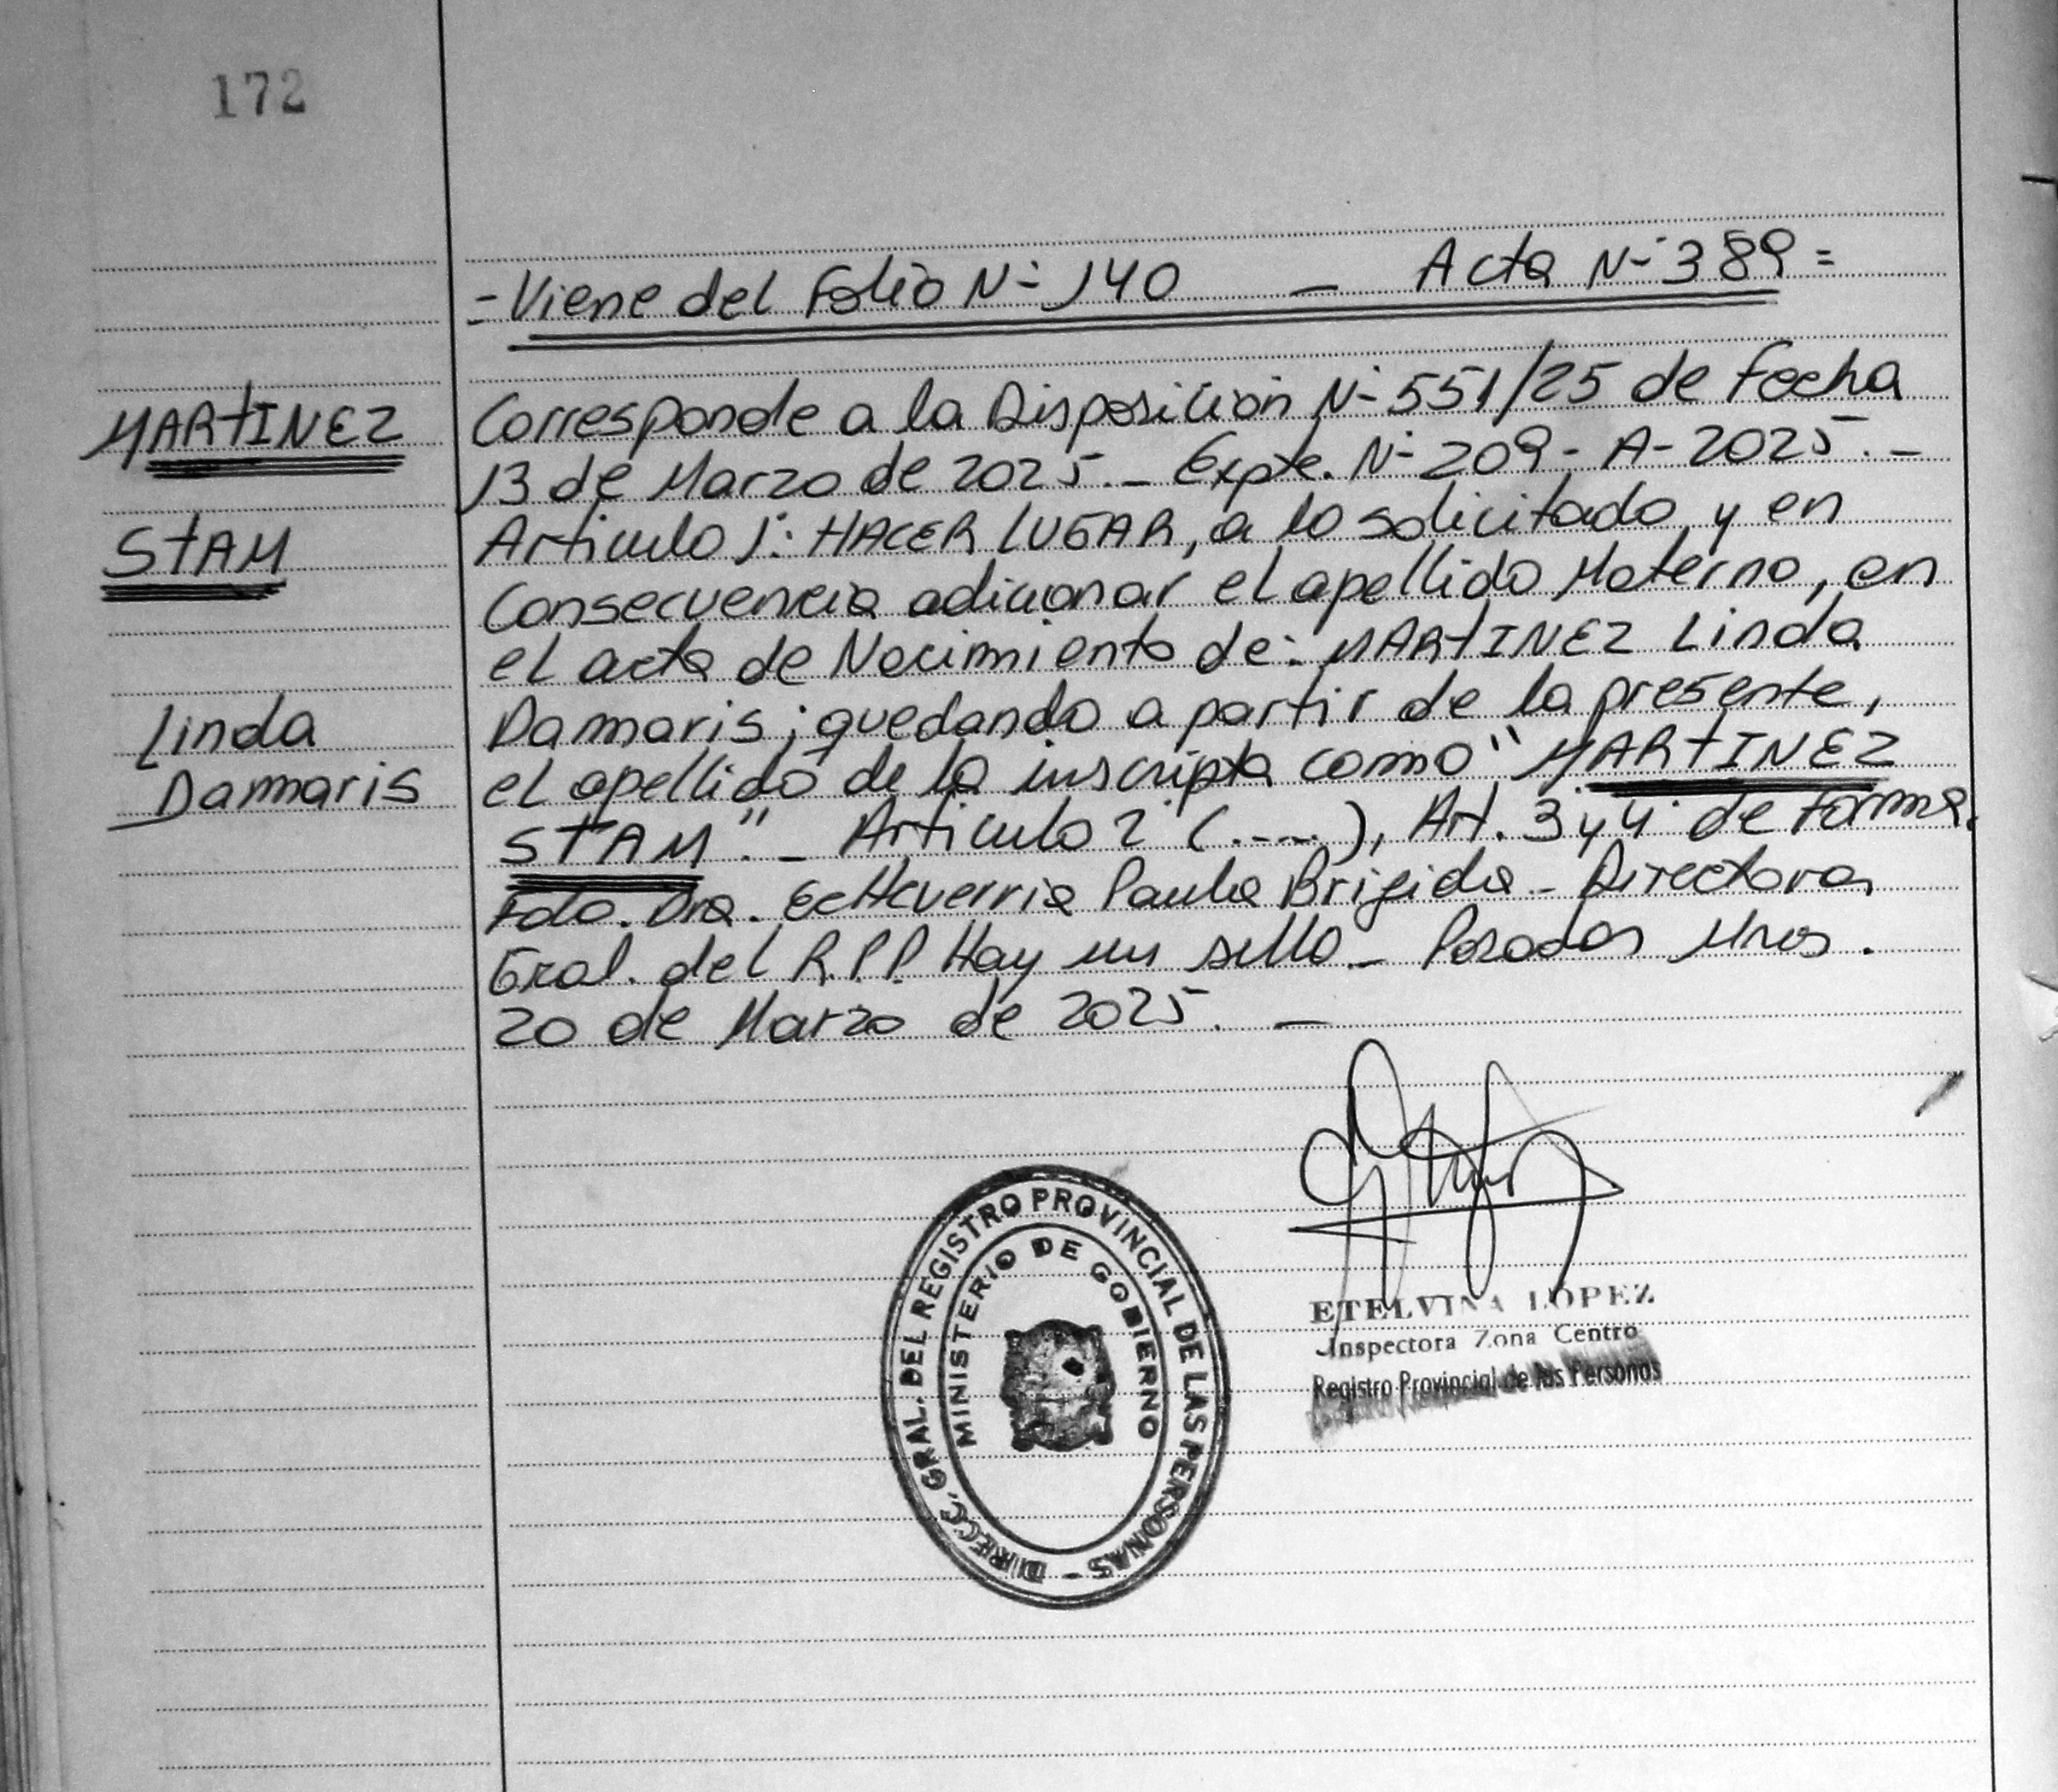 172
= Viene del Folio N- 140 — Acta N- 389 =
MARTINEZ
STAM
Linda
Dammaris
Corresponde a la Disposición N- 551/25 de Fecha
13 de Marzo de 2025.- Expte. N- 209- A- 2025.-
Articulo 1: HACER LUGAR, a lo solicitado, y en
Consecuencia adicionar el apellido Materno, en
el acta de Nacimiento de: MARTINEZ Linda
Dammaris; quedando a partir de la presente,
el apellido de la inscripta como "MARTINEZ
STAM". - Articulo 2 (.---), Art. 3 y 4 de forma.
Fdo. Dra. Echeverria Paula Brigida - Directora
Gral. del R.P.P. Hay un sello - Posadas Mnes.
20 de Marzo de 2025. -
DIRECC. GRAL. DEL REGISTRO PROVINCIAL DE LAS PERSONAS -
MINISTERIO DE GOBIERNO
ETELVINA LOPEZ
Inspectora Zona Centro
Registro Provincial de las Personas